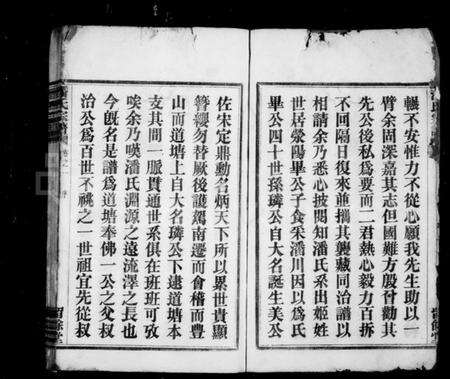 輾不安惟力不從心願我先生助以一
臂余固深嘉其志但國難方殷曾勸其
先公後私爲要而二君熱心毅力百拆
不回隔日復來並攜其襲藏同治譜以
相請余乃悉心披閱知潘氏系出姬姓
世居滎陽畢公子食采潘川因以爲氏
畢公四十世孫璘公自大名誕生美公
佐宋定鼎勳名炳天下所以累世貴顯
簪纓勿替厥後護駕南遷而會稽而豐
山而道塘上自大名璘公下逮道塘本
支其間一脈貫通世系俱在班班可攷
唉余乃嘆潘氏淵源之遠流澤之長也
今既名是譜爲道塘奉佛一公之父叔
治公爲百世不祧之一世祖宜先從叔